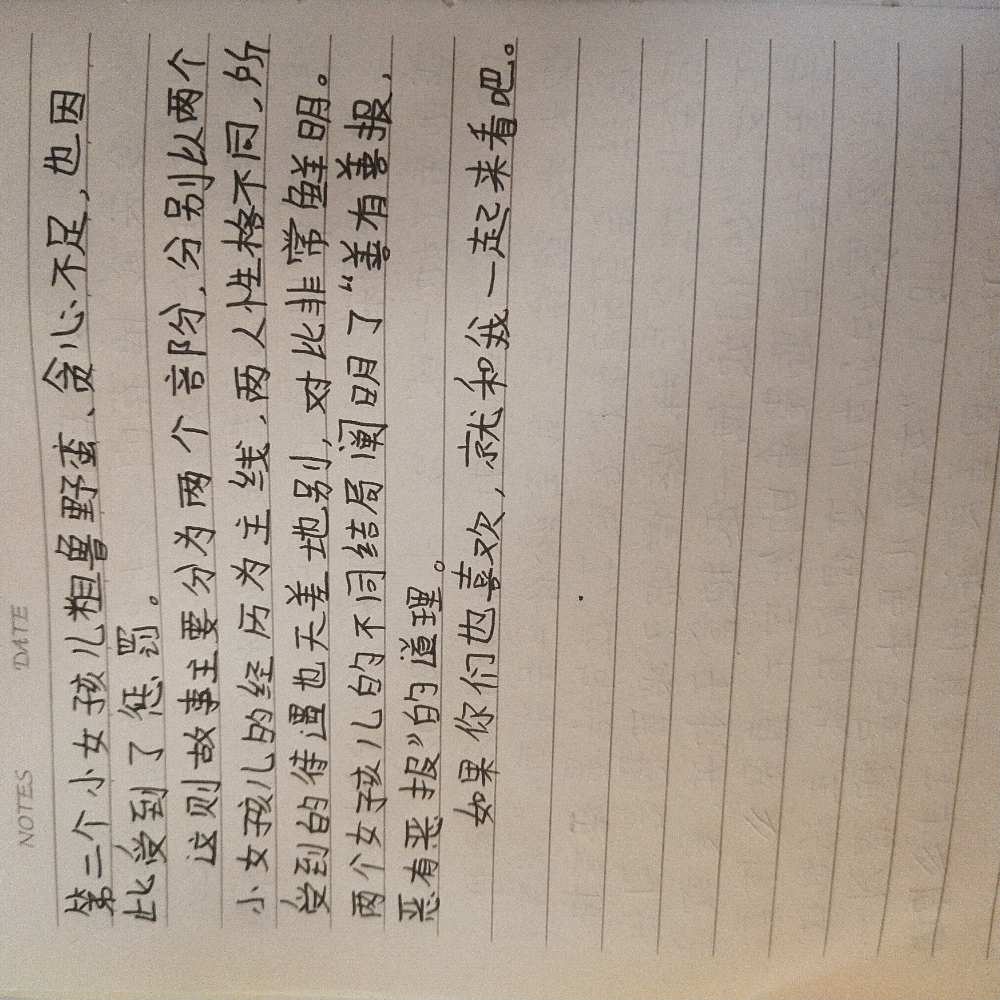 NOTES DATE
第二个小女孩儿粗鲁野蛮、贪心不足,也因
此受到了惩罚。
这则故事主要分为两个部分,分别以两个
小女孩儿的经历为主线,两人性格不同,所
受到的待遇也天差地别,对比非常鲜明。
两个女孩儿的不同结局阐明了“善有善报,
恶有恶报”的道理。
如果你们也喜欢,就和我一起来看吧。